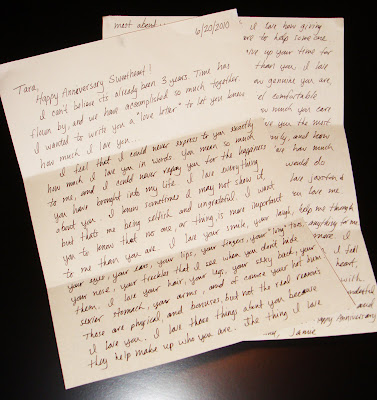 6/20/2010
Tara,
Happy Anniversary Sweetheart!
I can't believe its already been 3 years. Time has
flown by, and we have accomplished so much together.
I wanted to write you a "love letter" to let you know
how much I love you...
I feel that I could never express to you exactly
how much I love you in words. You mean so much
to me, and I could never repay you for the happiness
you have brought into my life. I love everything
about you. I know sometimes I may not show it,
but thats me being selfish and ungrateful. I want
you to know that no one, or thing, is more important
to me than you are. I love your smile, your laugh,
your eyes, your ears, your lips, your fingers, your "long" toes,
your nose, your freckles that I see when you don't hide
them. I love your hair, your legs, your silky back, your
sexier stomach, your arms, and of course your hot bum.
Those are physical, and bonuses, but not the real reasons
I love you. I love those things about you because
they help make up who you are. The thing I love
most about
I love how giving
to help someone
up your time for
than you. I love
how genuine you are,
comfortable
much you care
you the most
and know
how much
would do
love Jaxston &
you love me
help me through
anything for me
more I
I feel
heart,
with
and
Happy Anniversary